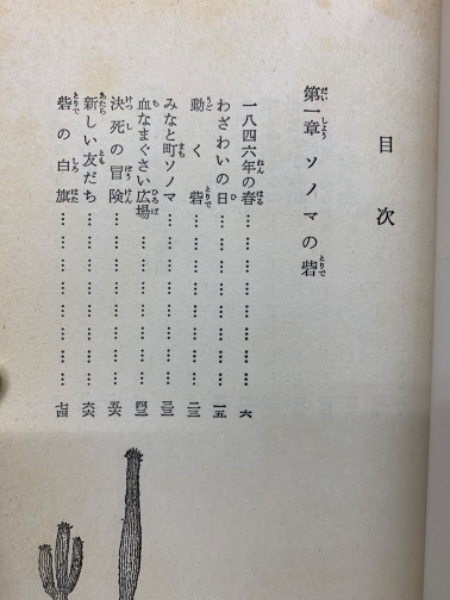 目次
第一章 ソノマの砦
一八四六年の春……………………………六
わざわいの日……………………………一五
動く砦……………………………二三
みなと町ソノマ……………………………三三
血なまぐさい広場……………………………四三
決死の冒険……………………………五六
新しい友だち……………………………六六
砦の白旗……………………………七四